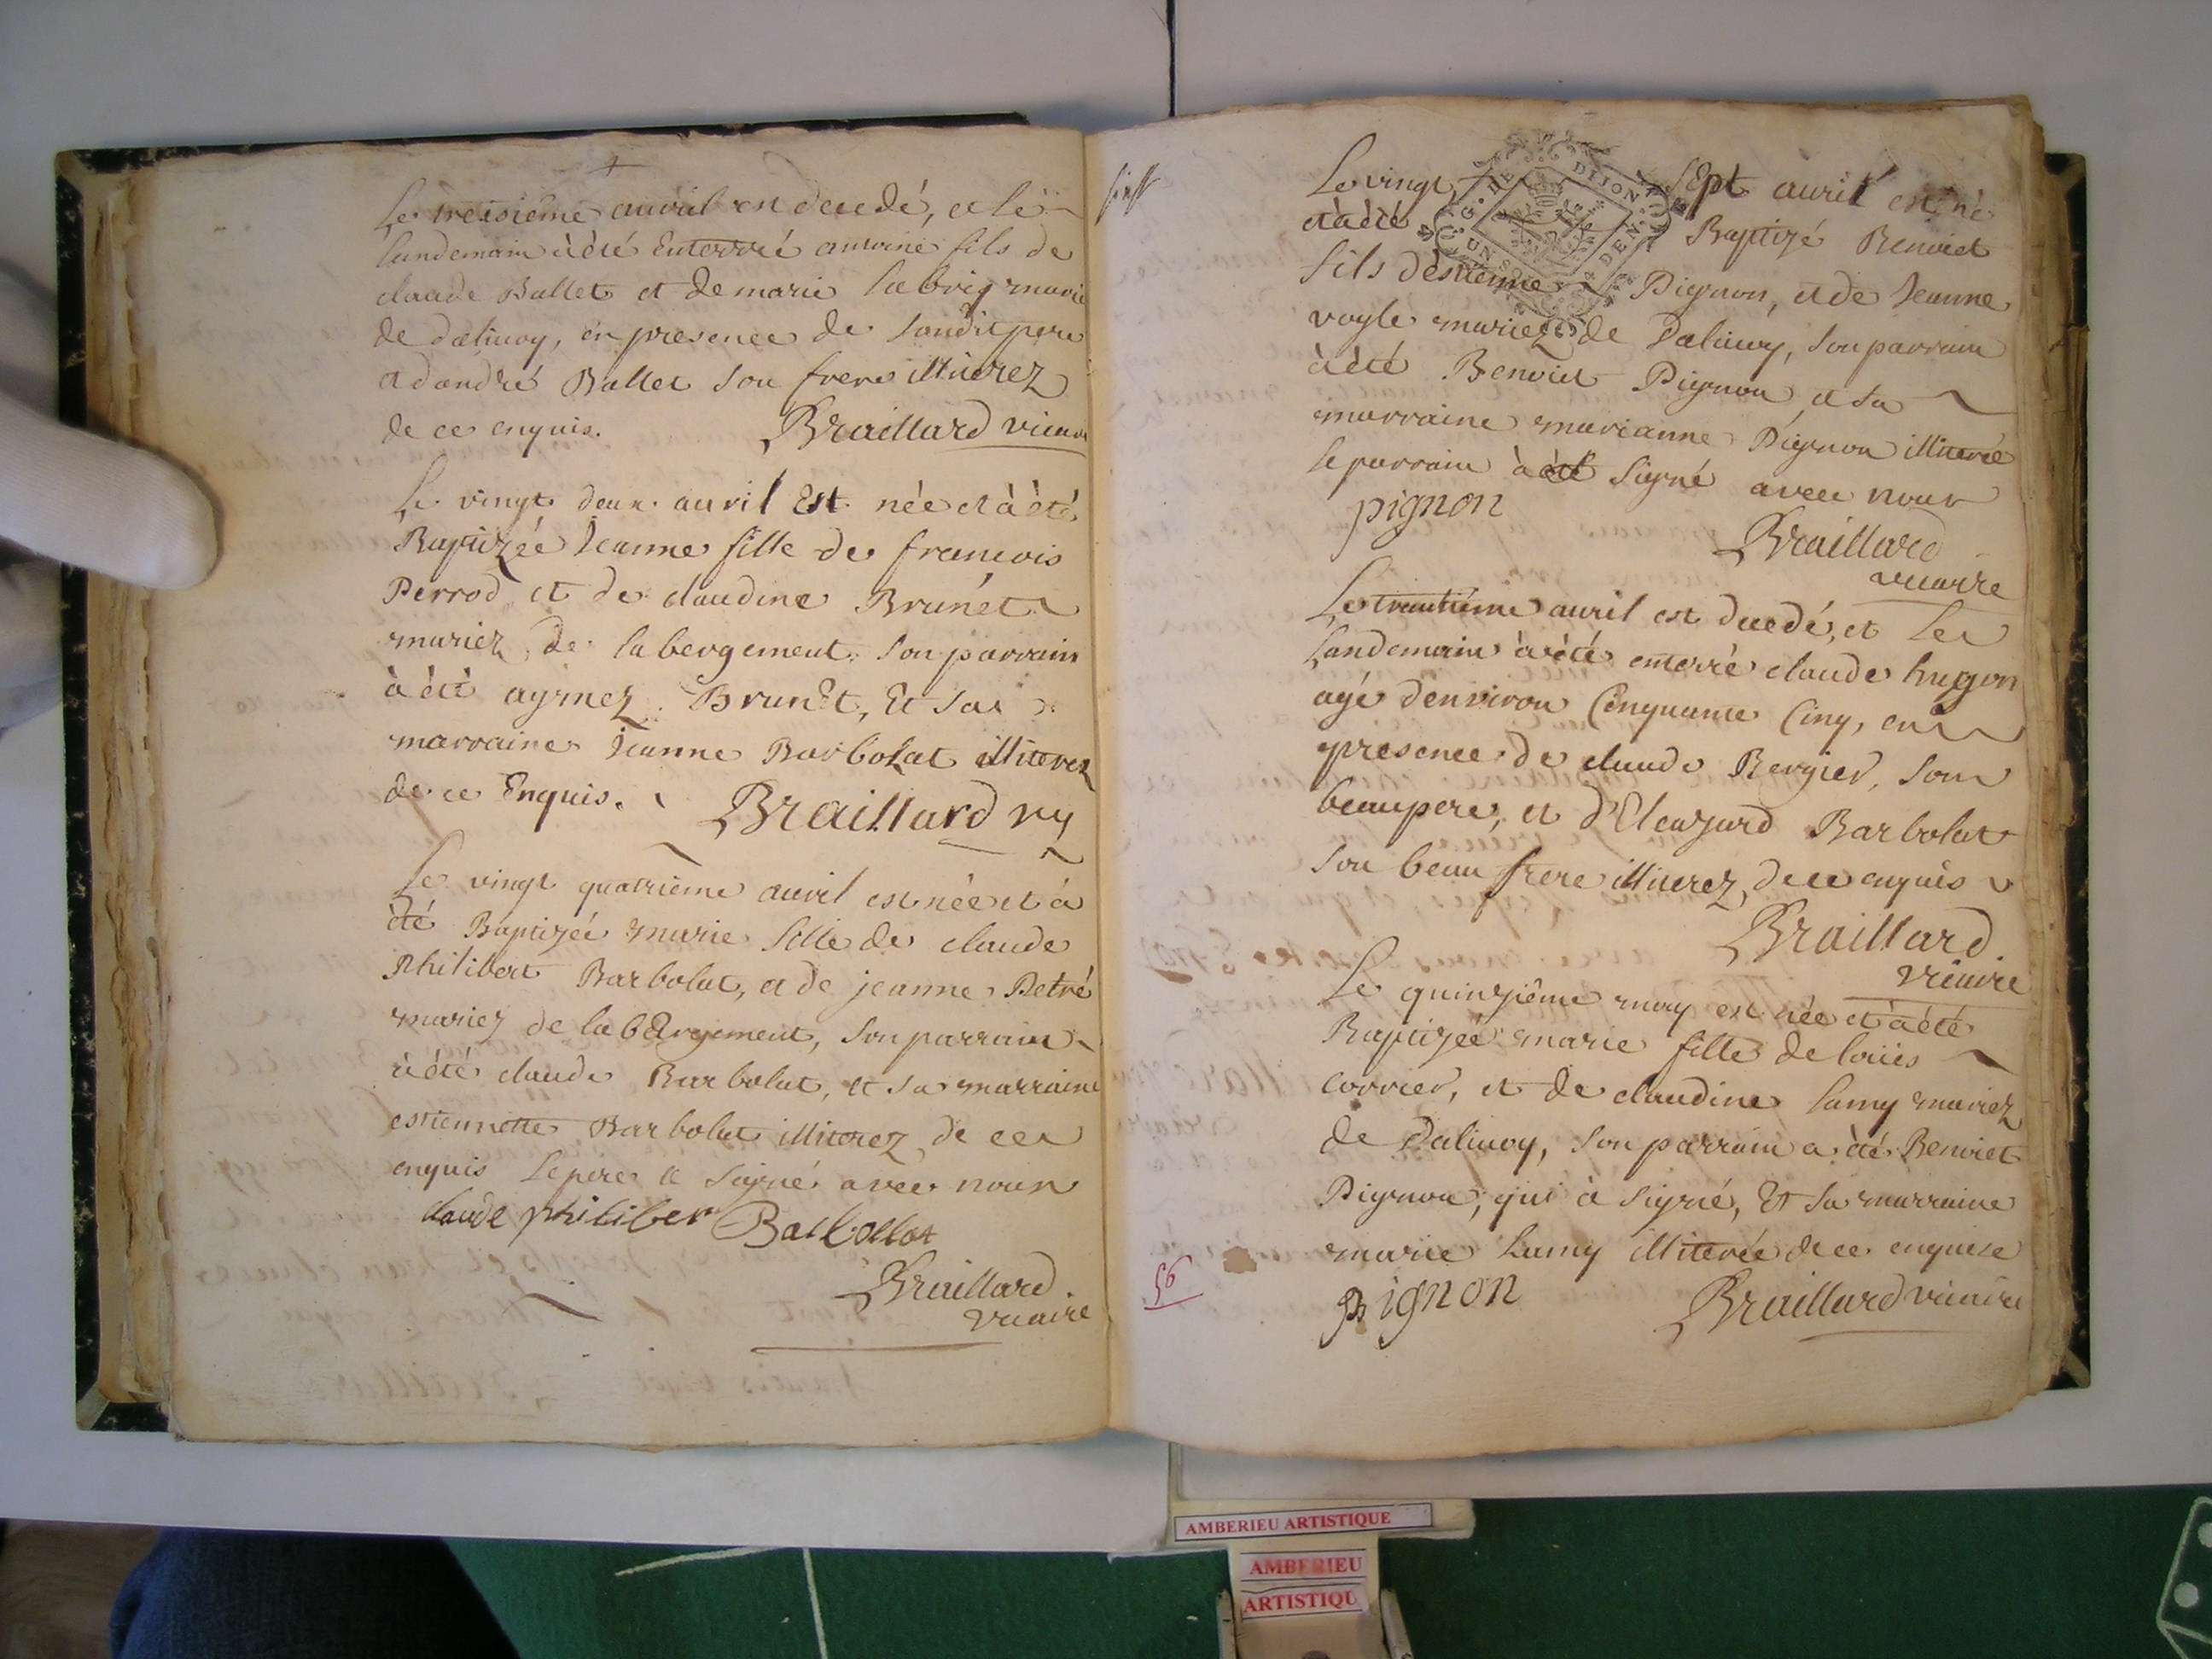 Le treisiême auvril en decedé, et le
landemain à été Enterré antoine fils de
claude Ballet et de marie labry marié
de dalivoy, en presence de sondit pere
et dandré Ballet son frere illiterez
de ce enquis. Braillard vicaire
Le vingt deux auvril Est née et à été
Baptizée Jeanne fille de francois
Perrod et de claudine Brunet
mariez de labergement son parrain
à été aymez Brunet, Et sa
marraine Jeanne Barbolat illiterez
de ce Enquis. Braillard vy
Le vingt quatrième auvril est née et à
été Baptizée marie fille de claude
Philibert Barbolat, et de jeanne Petré
mariez de labergement, son parrain
à été claude Barbolat, et sa marraine
estiennette Barbolat illiterez de ce
enquis le pere a signé avec nous
claude philiber Barbollat
Braillard
vicaire
Le vingt sept auvril est né
et à été Baptizé Benoict
fils destienne Pignon, et de Jeanne
voyle mariez de Dalivoy, son parrain
à été Benoict Pignon et sa
marraine marianne Pignon illiterée
le parrain à été signé avec nous
pignon
Braillard
vicaire
Le trentième auvril est decedé, et le
landemain à été enterré claude hugon
agé denviron Cinquante Cinq, en
presence de claude Bergier, son
beaupere, et d'Eleazard Barbolat
son beau frere illiterez de ce enquis
Braillard
vicaire
Le quinziême may est née et à été
Baptizée marie fille de loüis
corrier, et de claudine lamy mariez
de Dalivoy, son parrain a été Benoict
Pignon, qui à signé, Et sa marraine
marie Lamy illiterée de ce enquise
pignon Braillard vicaire
56
G. DE DIJON
UN SOL
DEN.
AMBERIEU ARTISTIQUE
AMBERIEU
ARTISTIQU